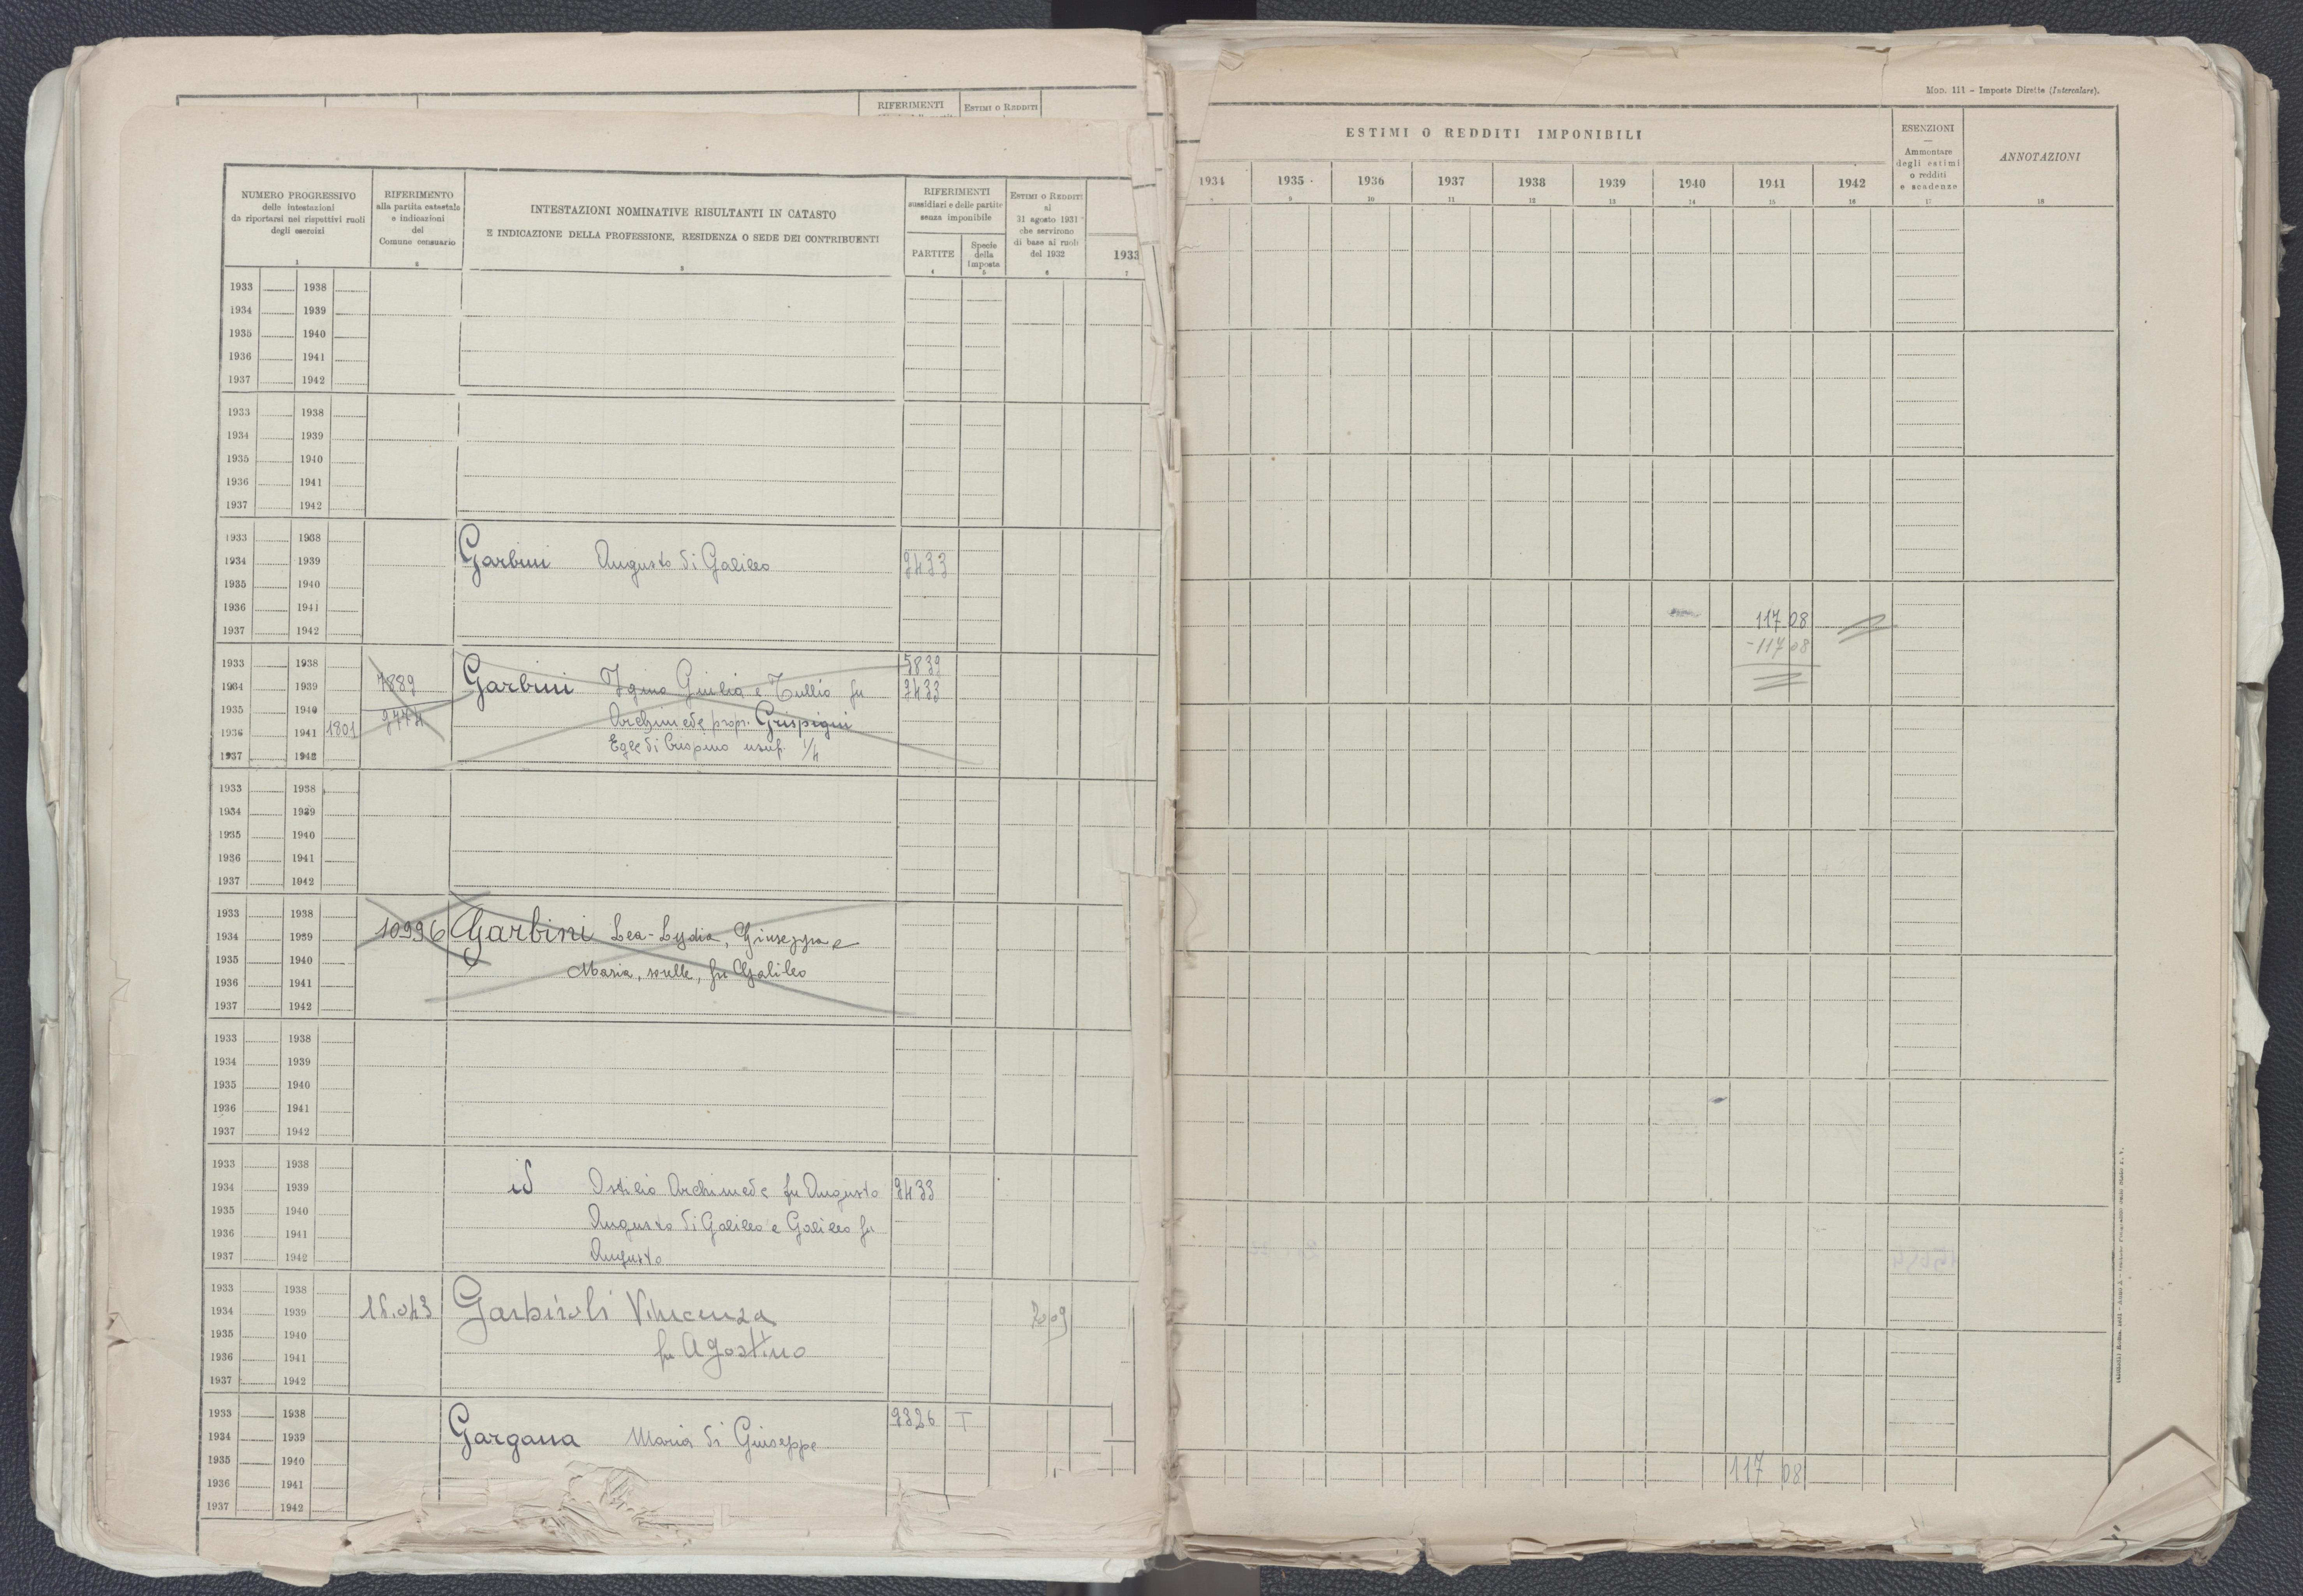 RIFERIMENTI ESTIMI O REDDITI
NUMERO PROGRESSIVO
delle intestazioni
da riportarsi nei rispettivi ruoli
degli esercizi
1
RIFERIMENTO
alla partita catastale
e indicazioni
del
Comune censuario
2
INTESTAZIONI NOMINATIVE RISULTANTI IN CATASTO
E INDICAZIONE DELLA PROFESSIONE, RESIDENZA O SEDE DEI CONTRIBUENTI
3
RIFERIMENTI
sussidiari e delle partite
senza imponibile
PARTITE
4
Specie
della
Imposta
5
ESTIMI O REDDITI
al
31 agosto 1931
che servirono
di base ai ruoli
del 1932
6
1933
7
1933 1938
1934 1939
1935 1940
1936 1941
1937 1942
1933 1938
1934 1939
1935 1940
1936 1941
1937 1942
1933 1938
1934 1939 Garbini Augusto di Galileo 9433
1935 1940
1936 1941
1937 1942
1933 1938 5839
1934 1939 7889 Garbini Igino Giulia e Tullio fu 9433
1935 1940 9774 Archimede propr. Grispigni
1936 1941 1801
1937 1942 Egle di Crispino usuf. 1/4
1933 1938
1934 1939
1935 1940
1936 1941
1937 1942
1933 1938
1934 1939 10996 Garbini Lea-Lydia, Giuseppa e
1935 1940 Maria, sorelle, fu Galileo
1936 1941
1937 1942
1933 1938
1934 1939
1935 1940
1936 1941
1937 1942
1933 1938
1934 1939 id Ostilio Archimede fu Augusto 9433
1935 1940 Augusto di Galileo e Galileo fu
1936 1941
1937 1942 Augusto
1933 1938
1934 1939 16.043 Garbiroli Vincenza 20 09
1935 1940 fu Agostino
1936 1941
1937 1942
1933 1938 9326 T
1934 1939 Gargana Maria di Giuseppe
1935 1940
1936 1941
1937 1942
MOD. 111 – Imposte Dirette (Intercalare).
ESTIMI O REDDITI IMPONIBILI
1934 1935 1936 1937 1938 1939 1940 1941 1942
9 10 11 12 13 14 15 16
ESENZIONI
Ammontare
degli estimi
o redditi
e scadenze
17
ANNOTAZIONI
18
117 08
-117 08
117 08